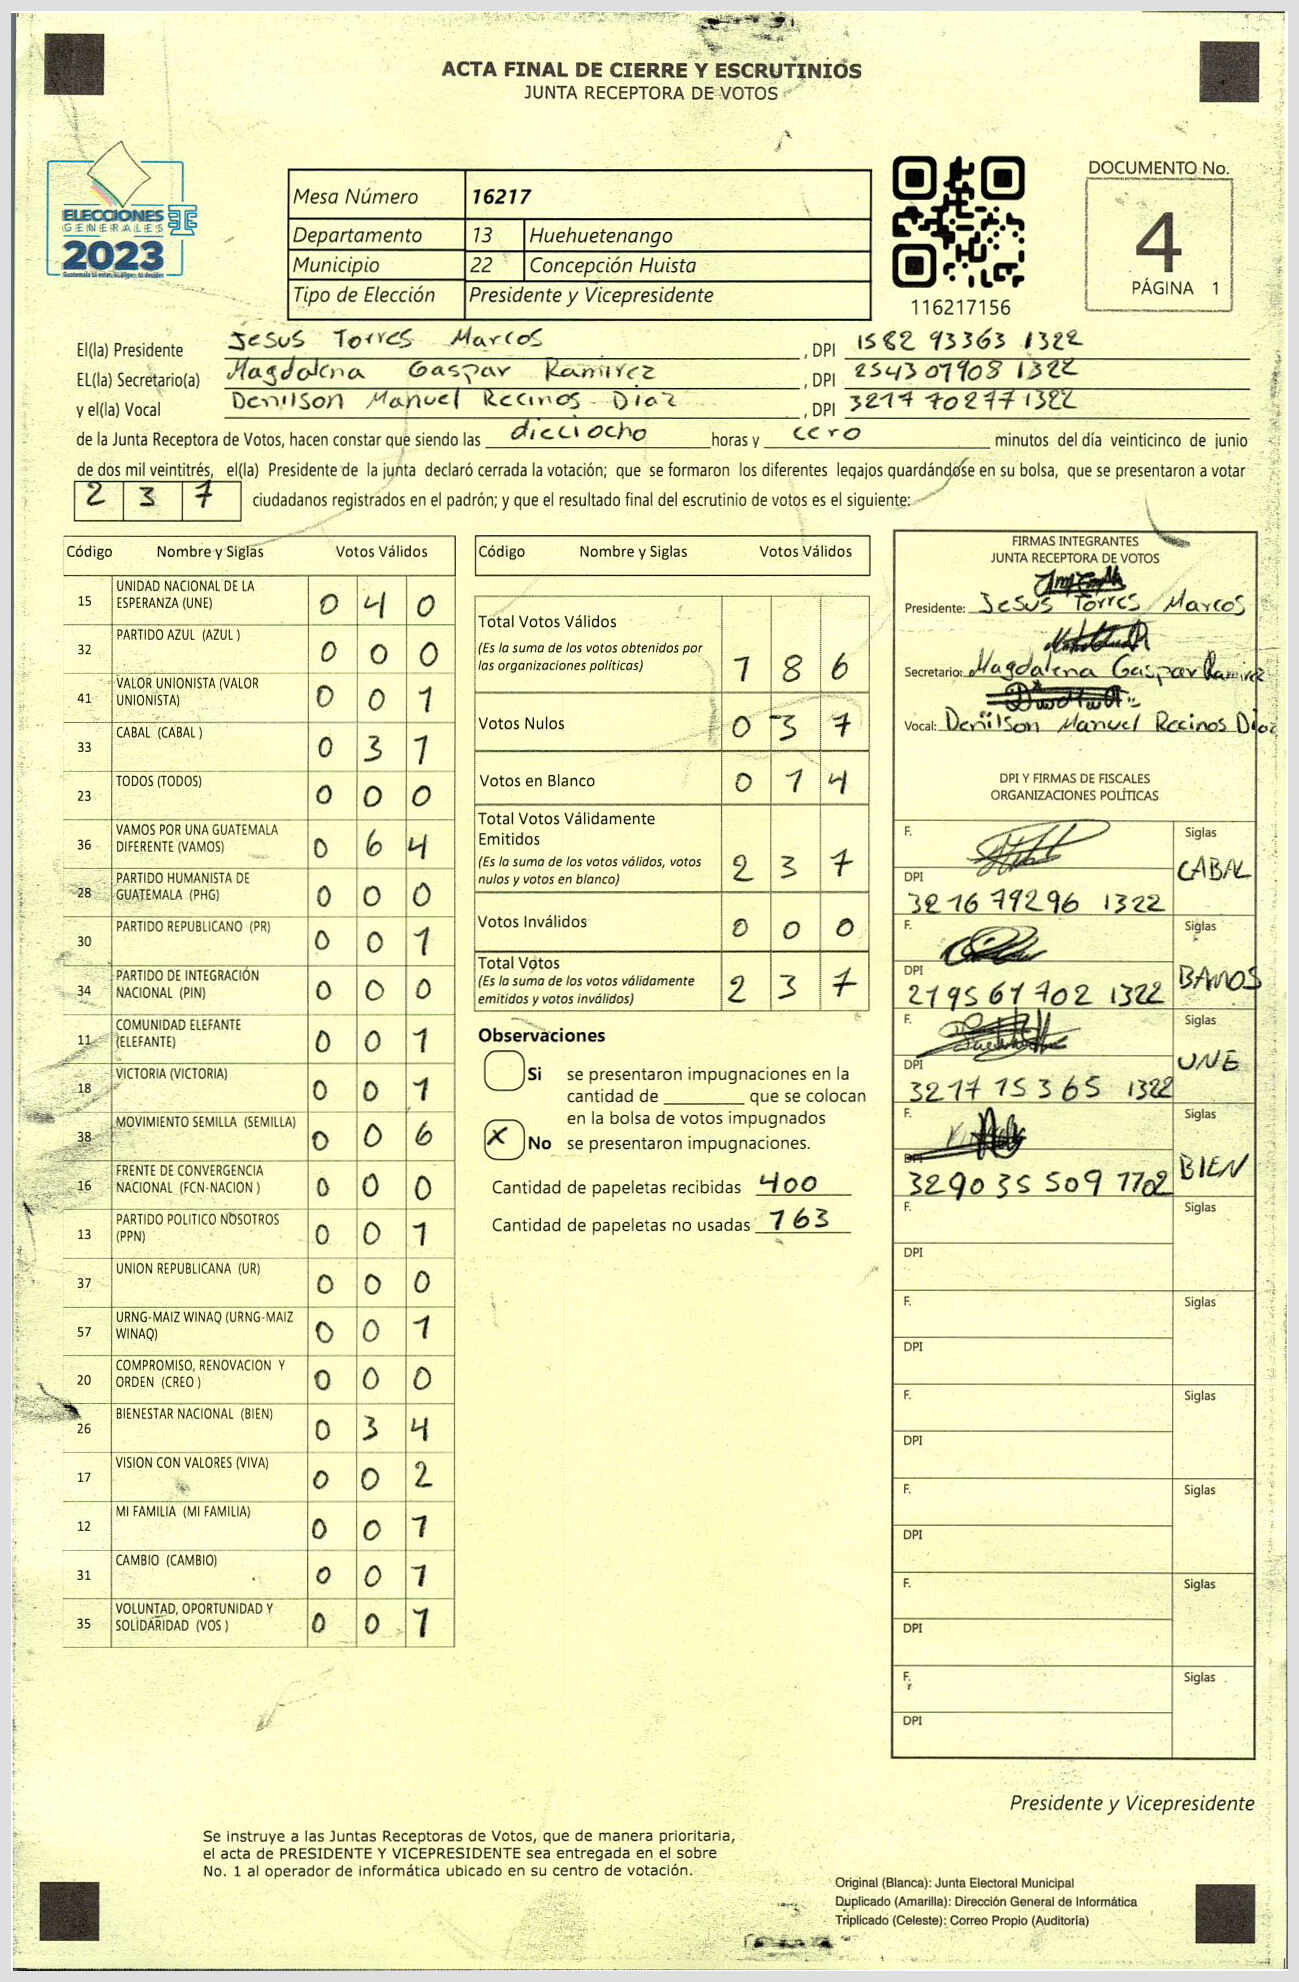 ACTA FINAL DE CIERRE Y ESCRUTINIOS
JUNTA RECEPTORA DE VOTOS
ELECCIONES
GENERALES
2023
Mesa Número 16217
Departamento 13 Huehuetenango
Municipio 22 Concepción Huista
Tipo de Elección Presidente y Vicepresidente
116217156
DOCUMENTO No.
4
PÁGINA 1
El(la) Presidente Jesus Torres Marcos , DPI 1582 93363 1322
EL(la) Secretario(a) Magdalena Gaspar Ramirez , DPI 2543 07908 1322
y el(la) Vocal Denilson Manuel Recinos Diaz , DPI 3217 70277 1322
de la Junta Receptora de Votos, hacen constar que siendo las dieciocho horas y cero minutos del día veinticinco de junio
de dos mil veintitrés, el(la) Presidente de la junta declaró cerrada la votación; que se formaron los diferentes legajos quardándose en su bolsa, que se presentaron a votar
2 3 7 ciudadanos registrados en el padrón; y que el resultado final del escrutinio de votos es el siguiente:
Código Nombre y Siglas Votos Válidos
15 UNIDAD NACIONAL DE LA ESPERANZA (UNE) 0 4 0
32 PARTIDO AZUL (AZUL ) 0 0 0
41 VALOR UNIONISTA (VALOR UNIONISTA) 0 0 1
33 CABAL (CABAL ) 0 3 1
23 TODOS (TODOS) 0 0 0
36 VAMOS POR UNA GUATEMALA DIFERENTE (VAMOS) 0 6 4
28 PARTIDO HUMANISTA DE GUATEMALA (PHG) 0 0 0
30 PARTIDO REPUBLICANO (PR) 0 0 1
34 PARTIDO DE INTEGRACIÓN NACIONAL (PIN) 0 0 0
11 COMUNIDAD ELEFANTE (ELEFANTE) 0 0 1
18 VICTORIA (VICTORIA) 0 0 1
38 MOVIMIENTO SEMILLA (SEMILLA) 0 0 6
16 FRENTE DE CONVERGENCIA NACIONAL (FCN-NACION ) 0 0 0
13 PARTIDO POLITICO NOSOTROS (PPN) 0 0 1
37 UNION REPUBLICANA (UR) 0 0 0
57 URNG-MAIZ WINAQ (URNG-MAIZ WINAQ) 0 0 1
20 COMPROMISO, RENOVACION Y ORDEN (CREO ) 0 0 0
26 BIENESTAR NACIONAL (BIEN) 0 3 4
17 VISION CON VALORES (VIVA) 0 0 2
12 MI FAMILIA (MI FAMILIA) 0 0 1
31 CAMBIO (CAMBIO) 0 0 1
35 VOLUNTAD, OPORTUNIDAD Y SOLIDARIDAD (VOS ) 0 0 1
Código Nombre y Siglas Votos Válidos
Total Votos Válidos
(Es la suma de los votos obtenidos por
las organizaciones políticas) 1 8 6
Votos Nulos 0 3 7
Votos en Blanco 0 1 4
Total Votos Válidamente
Emitidos
(Es la suma de los votos válidos, votos
nulos y votos en blanco) 2 3 7
Votos Inválidos 0 0 0
Total Votos
(Es la suma de los votos válidamente
emitidos y votos inválidos) 2 3 7
Observaciones
Si se presentaron impugnaciones en la
cantidad de que se colocan
en la bolsa de votos impugnados
X No se presentaron impugnaciones.
Cantidad de papeletas recibidas 400
Cantidad de papeletas no usadas 163
FIRMAS INTEGRANTES
JUNTA RECEPTORA DE VOTOS
Presidente: Jesus Torres Marcos
Secretario: Magdalena Gaspar Ramirez
Vocal: Denilson Manuel Recinos Diaz
DPI Y FIRMAS DE FISCALES
ORGANIZACIONES POLÍTICAS
F. Siglas CABAL
DPI 3216 79296 1322
F. Siglas BAMOS
DPI 2195 61 702 1322
F. Siglas UNE
DPI 3217 15 365 1322
F. Siglas BIEN
DPI 3290 35 509 1102
F. Siglas
DPI
F. Siglas
DPI
F. Siglas
DPI
F. Siglas
DPI
F. Siglas
DPI
F. Siglas
DPI
Presidente y Vicepresidente
Se instruye a las Juntas Receptoras de Votos, que de manera prioritaria,
el acta de PRESIDENTE Y VICEPRESIDENTE sea entregada en el sobre
No. 1 al operador de informática ubicado en su centro de votación.
Original (Blanca): Junta Electoral Municipal
Duplicado (Amarilla): Dirección General de Informática
Triplicado (Celeste): Correo Propio (Auditoría)